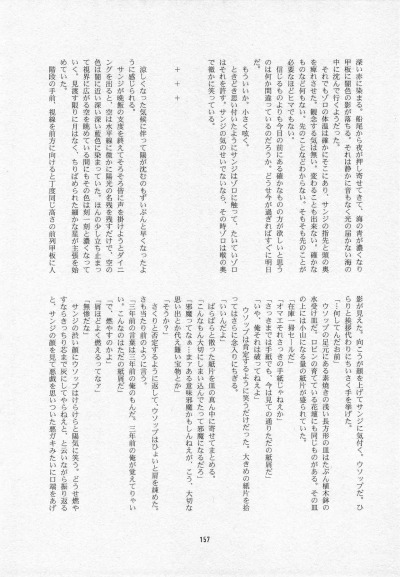 深い赤に染まる、船尾から夜が押し寄せてきて、海の青が濃くなり
甲板に闇色の影が落ちる。それは静かに音もなく光の届かない海の
中に沈んで行くようだった。
それでもゾロの体温は確かにそこにあり、サンジの指先と頭の奥
を痺れさせた。観念する気は無い、変わることも出来ない。確かな
ものなど何もない、先のことなどわからない。そもそも先のことが
必要なほどヒマでもない。
信じるものよりも今目の前にある確かなものの方が欲しいと思う
のは何か間違っているのだろうか、どうせ今が過ぎればすぐに明日
だ。
もういいか、小さく呟く。
ときどき思い付いたようにサンジはゾロに触って、たいていゾロ
はそれを許す。サンジの気のせいでないなら、その時ゾロは喉の奥
で微かに笑っている。
+ + +
涼しくなった気候に伴って陽が沈むのもずいぶんと早くなったよ
うに感じられる。
サンジが晩飯の支度を終えてそろそろ皆に声を掛けようとダイニ
ングを出ると、空は水平線に微かに陽光の名残を残すだけで、空の
色は闇に近い深い深い藍色に染まっていた。ほんの少し立ち止まっ
て視界に広がる空を眺めている間にもその色は刻一刻と濃くなって
いく。見渡す限りに月はなく、ちりばめられた細かな星が主張を始
めていた。
階段の手前、視線を前方に向けると丁度同じ高さの前列甲板に人
影が見えた。向こうが顔を上げてサンジに気付く、ウソップだ。ひ
らりと挨拶代わりにちいさく手を挙げた。
「…何してんだお前」
ウソップの足元にある素焼きの浅い長方形の皿はたぶん植木鉢の
水受け皿だ。ロビンの育てている花壇にも同じものがある。その皿
の上には小山になる量の紙片が盛られていた。
「在庫一掃セールだ」
「オマエそれさっきの手紙じゃねえか」
「さっきまでは手紙でも、今は見ての通りただの紙屑だ」
「いや、俺それは破ってねえよ」
ウソップは肯定するように笑うだけだった。大きめの紙片を拾
ってはさらに念入りにちぎる。
「いいんだよ」
ぱらぱらと散った紙片を皿の真ん中に寄せてまとめる。
「こんなもん大切にしまい込んでたって邪魔になるだろ」
「邪魔ってなぁ…まァある意味邪魔かもしんねえが、こう、大切な
思い出とか代え難い宝物とか」
「そうか？」
さくりと否定するように返して、ウソップはひょいと肩を竦めた。
さも当たり前のように言う。
「三年前の言葉は三年前の俺のもんだ。三年前の俺が覚えてりゃい
い。こんなのはただの紙屑だ」
「で、燃やすのか」
「屑はどよく燃えるってなァ」
「無惨だな」
サンジの渋い顔にウソップはけらけらと陽気に笑う。どうせ燃や
すならきっちり芯まで灰にしてやらねえと、と云いながら振り返る
と、サンジの顔を見て悪戯を思いついた悪ガキみたいに口端をあげ
157